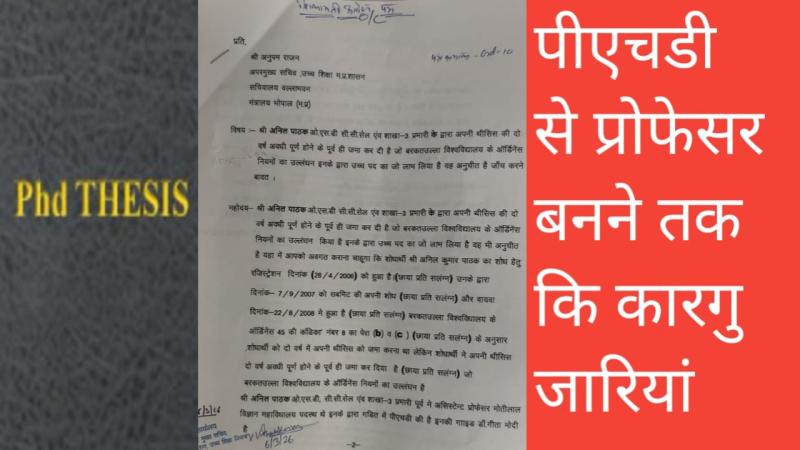 Phd THESIS
O/C
प्रति,
श्री अनुपम राजन
अपरमुख्य सचिव ,उच्च शिक्षा म.प्र.शासन
सचिवालय वल्लाभवन
मंत्रालय भोपाल (म.प्र)
विषय :– श्री अनिल पाठक ओ.एस.डी सी.सी.सेल एंव शाखा–3 प्रमारी के द्वारा अपनी थीसिस की दो
वर्ष अवधी पूर्ण होने के पूर्व ही जमा कर दी है जो बरकतउल्ला विश्वविद्यालय के ऑर्डिनेंस
नियमों का उल्लंघन इनके द्वारा उच्च पद का जो लाभ लिया है वह अनुचीत है जाँच करने
बावत ।
महोदय– श्री अनिल पाठक ओ.एस.डी सी.सी.सेल एंव शाखा–3 प्रमारी के द्वारा अपनी थीसिस की दो
वर्ष अवधी पूर्ण होने के पूर्व ही जमा कर दी है जो बरकतउल्ला विश्वविद्यालय के ऑर्डिनेंस
नियमों का उल्लंघन किया है इनके द्वारा उच्च पद का जो लाभ लिया है वह भी अनुचीत
है यहा में आपको अवगत कराना चाहूगा कि शोधार्थी श्री अनिल कुमार पाठक का शोध हेतु
रजिस्ट्रेशन दिनांक (28/4/2006) को हुआ है।(छाया प्रति सलंग्न) उनके द्वारा
दिनांक– 7/9/2007 को सबमिट की अपनी शोध (छाया प्रति सलंग्न) और वायवा
दिनांक–22/8/2008 मे हुआ है (छाया प्रति सलंग्न) बरकतउल्ला विश्वविद्यालय के
ऑर्डिनेंस 45 की कंडिका नंबर 8 का पेरा (b) व (c ) (छाया प्रति सलंग्न) के अनुसार
,शोधार्थी को दो वर्ष में अपनी थीसिस को जमा करना था लेकिन शोधार्थी ने अपनी थीसिस
दो वर्ष अवधी पूर्ण होने के पूर्व ही जमा कर दिया है (छाया प्रति सलंग्न) जो
बरकतउल्ला विश्वविद्यालय के ऑर्डिनेंस नियमों का उल्लंघन है
श्री अनिल पाठक ओ.एस.डी. सी.सी.सेल एंव शाखा–3 प्रमारी पूर्व मे असिस्टेंट प्रोफेसर मोतीलाल
विज्ञान महाविद्यालय पदस्थ थे इनके द्वारा गडित में पीएचडी की है इनकी गााइड डॉ.गीता मोदी
है
6/3/26
–2–
पीएचडी
से प्रोफेसर
बनने तक
कि कारगु
जारियां